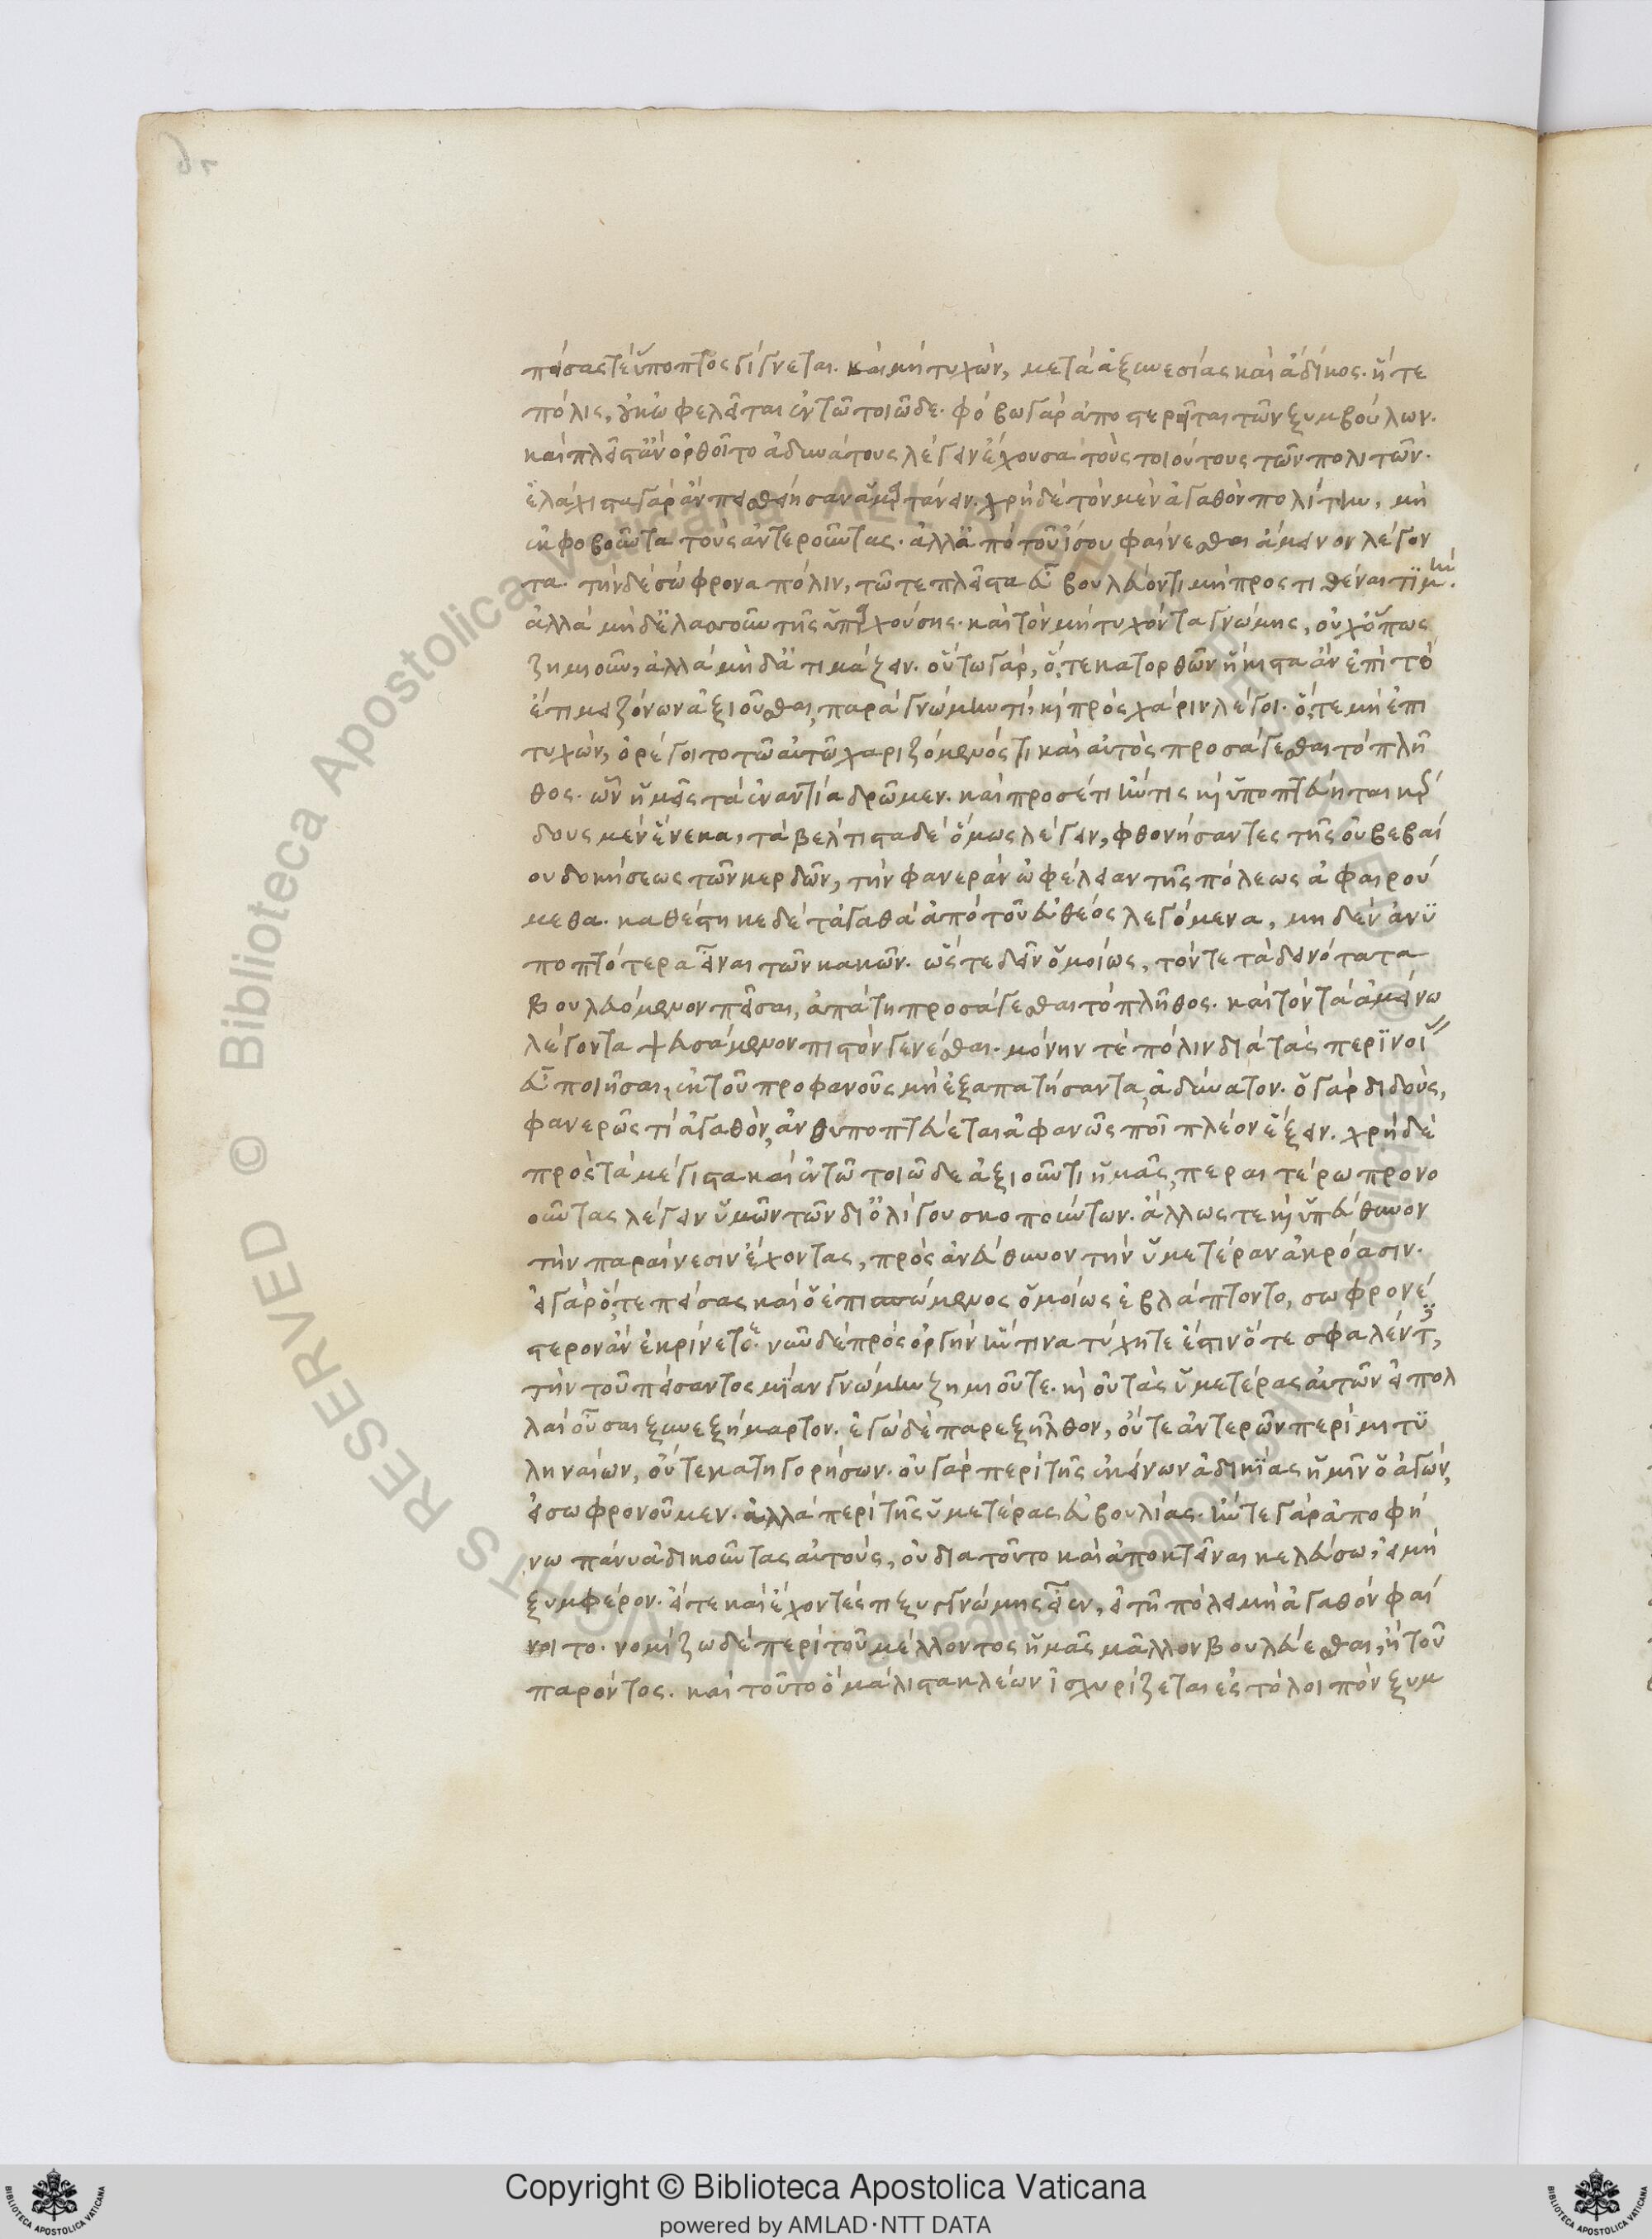 πείσας τε ὕποπτος γίγνεται. καὶ μὴ τυχὼν, μετὰ ἀξυνεσίας καὶ ἄδικος. ἥ τε
πόλις, οὐκ ὠφελεῖται ἐν τῶ τοιῶδε. φόβω γὰρ ἀποστερεῖται τῶν ξυμβούλων.
καὶ πλεῖστ' ἂν ὀρθοῖτο ἀδυνάτους λέγειν ἔχουσα τοὺς τοιούτους τῶν πολιτῶν.
ἐλάχιστα γὰρ ἂν πεισθείησαν ἁμαρτάνειν. χρὴ δὲ τὸν μὲν ἀγαθὸν πολίτην, μὴ
ἐκφοβοῦντα τοὺς ἀντεροῦντας. ἀλλ' ἀπὸ τοῦ ἴσου φαίνεσθαι ἄμεινον λέγον
τα. τὴν δὲ σώφρονα πόλιν, τῶ τε πλεῖστα εὖ βουλεύοντι μὴ προστιθέναι τιμήν.
ἀλλὰ μὴ δ' ἐλασσοῦν τῆς ὑπαρχούσης. καὶ τὸν μὴ τυχόντα γνώμης, οὐχ ὅπως
ζημιοῦν, ἀλλὰ μὴ δ' ἀτιμάζειν. οὕτω γὰρ, ὅ, τε κατορθῶν ἥκιστα ἂν ἐπὶ τὸ
ἔτι μειζόνων ἀξιοῦσθαι, παρὰ γνώμην τί, καὶ πρὸς χάριν λέγοι. ὅ, τε μὴ ἐπι
τυχὼν, ὀρέγοιτο τῶ αὐτῶ χαριζόμενός τι καὶ αὐτὸς προσάγεσθαι τὸ πλῆ
θος. ὧν ἡμεῖς τὰ ἐναντία δρῶμεν. καὶ προσέτι ἤν τις καὶ ὑποπτεύηται κέρ
δους μὲν ἕνεκα, τὰ βέλτιστα δὲ ὅμως λέγειν, φθονήσαντες τῆς οὐ βεβαί
ου δοκήσεως τῶν κερδῶν, τὴν φανερὰν ὠφέλειαν τῆς πόλεως ἀφαιρού
μεθα. καθέστηκε δὲ τἀγαθὰ ἀπὸ τοῦ εὐθέος λεγόμενα, μηδὲν ἀνυ
ποπτότερα εἶναι τῶν κακῶν. ὥστε δεῖν ὁμοίως, τόν τε τὰ δεινότατα
βουλευόμενον πεῖσαι, ἀπάτη προσάγεσθαι τὸ πλῆθος. καὶ τὸν τὰ ἀμείνω
λέγοντα ψευσάμενον πιστὸν γενέσθαι. μόνην τὲ πόλιν διὰ τὰς περινοίας
εὖ ποιῆσαι, ἐκ τοῦ προφανοῦς μὴ ἐξαπατήσαντα, ἀδύνατον. ὁ γὰρ διδοὺς,
φανερῶς τὶ ἀγαθὸν, ἀνθυποπτεύεται ἀφανῶς ποῖ πλέον ἕξειν. χρὴ δὲ
πρὸς τὰ μέγιστα καὶ ἐν τῶ τοιῶδε ἀξιοῦντι ἡμᾶς, περαιτέρω προνο
οῦντας λέγειν ὑμῶν τῶν δι' ὀλίγου σκοπούντων. ἄλλως τε καὶ ὑπεύθυνον
τὴν παραίνεσιν ἔχοντας, πρὸς ἀνεύθυνον τὴν ὑμετέραν ἀκρόασιν.
εἰ γὰρ ὅ, τε πείσας καὶ ὁ ἐπισπώμενος ὁμοίως ἐβλάπτοντο, σωφρονέ
στερον ἂν ἐκρίνετε. νῦν δὲ πρὸς ὀργὴν ἥντινα τύχητε ἔστιν ὅτε σφαλέντες,
τὴν τοῦ πείσαντος μίαν γνώμην ζημιοῦτε. καὶ οὐ τὰς ὑμετέρας αὐτῶν εἰ πολ
λαὶ οὖσαι ξυνεξήμαρτον. ἐγὼ δὲ παρεξῆλθον, οὔτε ἀντερῶν περὶ μιτυ
ληναίων, οὔτε κατηγορήσων. οὐ γὰρ περὶ τῆς ἐκείνων ἀδικίας ἡμῖν ὁ ἀγών,
εἰ σωφρονοῦμεν. ἀλλὰ περὶ τῆς ὑμετέρας εὐβουλίας. ἤν τε γὰρ ἀποφή
νω πάνυ ἀδικοῦντας αὐτοὺς, οὐ δια τοῦτο καὶ ἀποκτεῖναι κελεύσω, εἰ μὴ
ξυμφέρον. εἴτε καὶ ἔχοντές τι ξυγγνώμης εἶεν, εἰ τῆ πόλει μὴ ἀγαθὸν φαί
νοιτο. νομίζω δὲ περὶ τοῦ μέλλοντος ἡμᾶς μᾶλλον βουλεύεσθαι, ἢ τοῦ
παρόντος. καὶ τοῦτο ὃ μάλιστα κλέων ἰσχυρίζεται ἐς τὸ λοιπὸν ξυμ
Copyright © Biblioteca Apostolica Vaticana
powered by AMLAD·NTT DATA